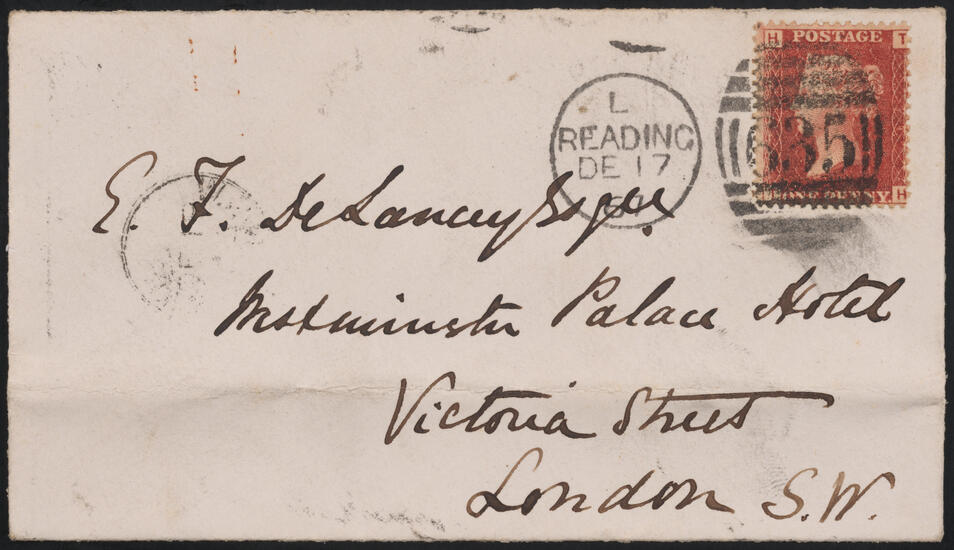 H POSTAGE T
L
READING
DE 17
635
ONE PENNY H
E. F. DeLancey Esqre.
Westminster Palace Hotel
Victoria Street
London S.W.